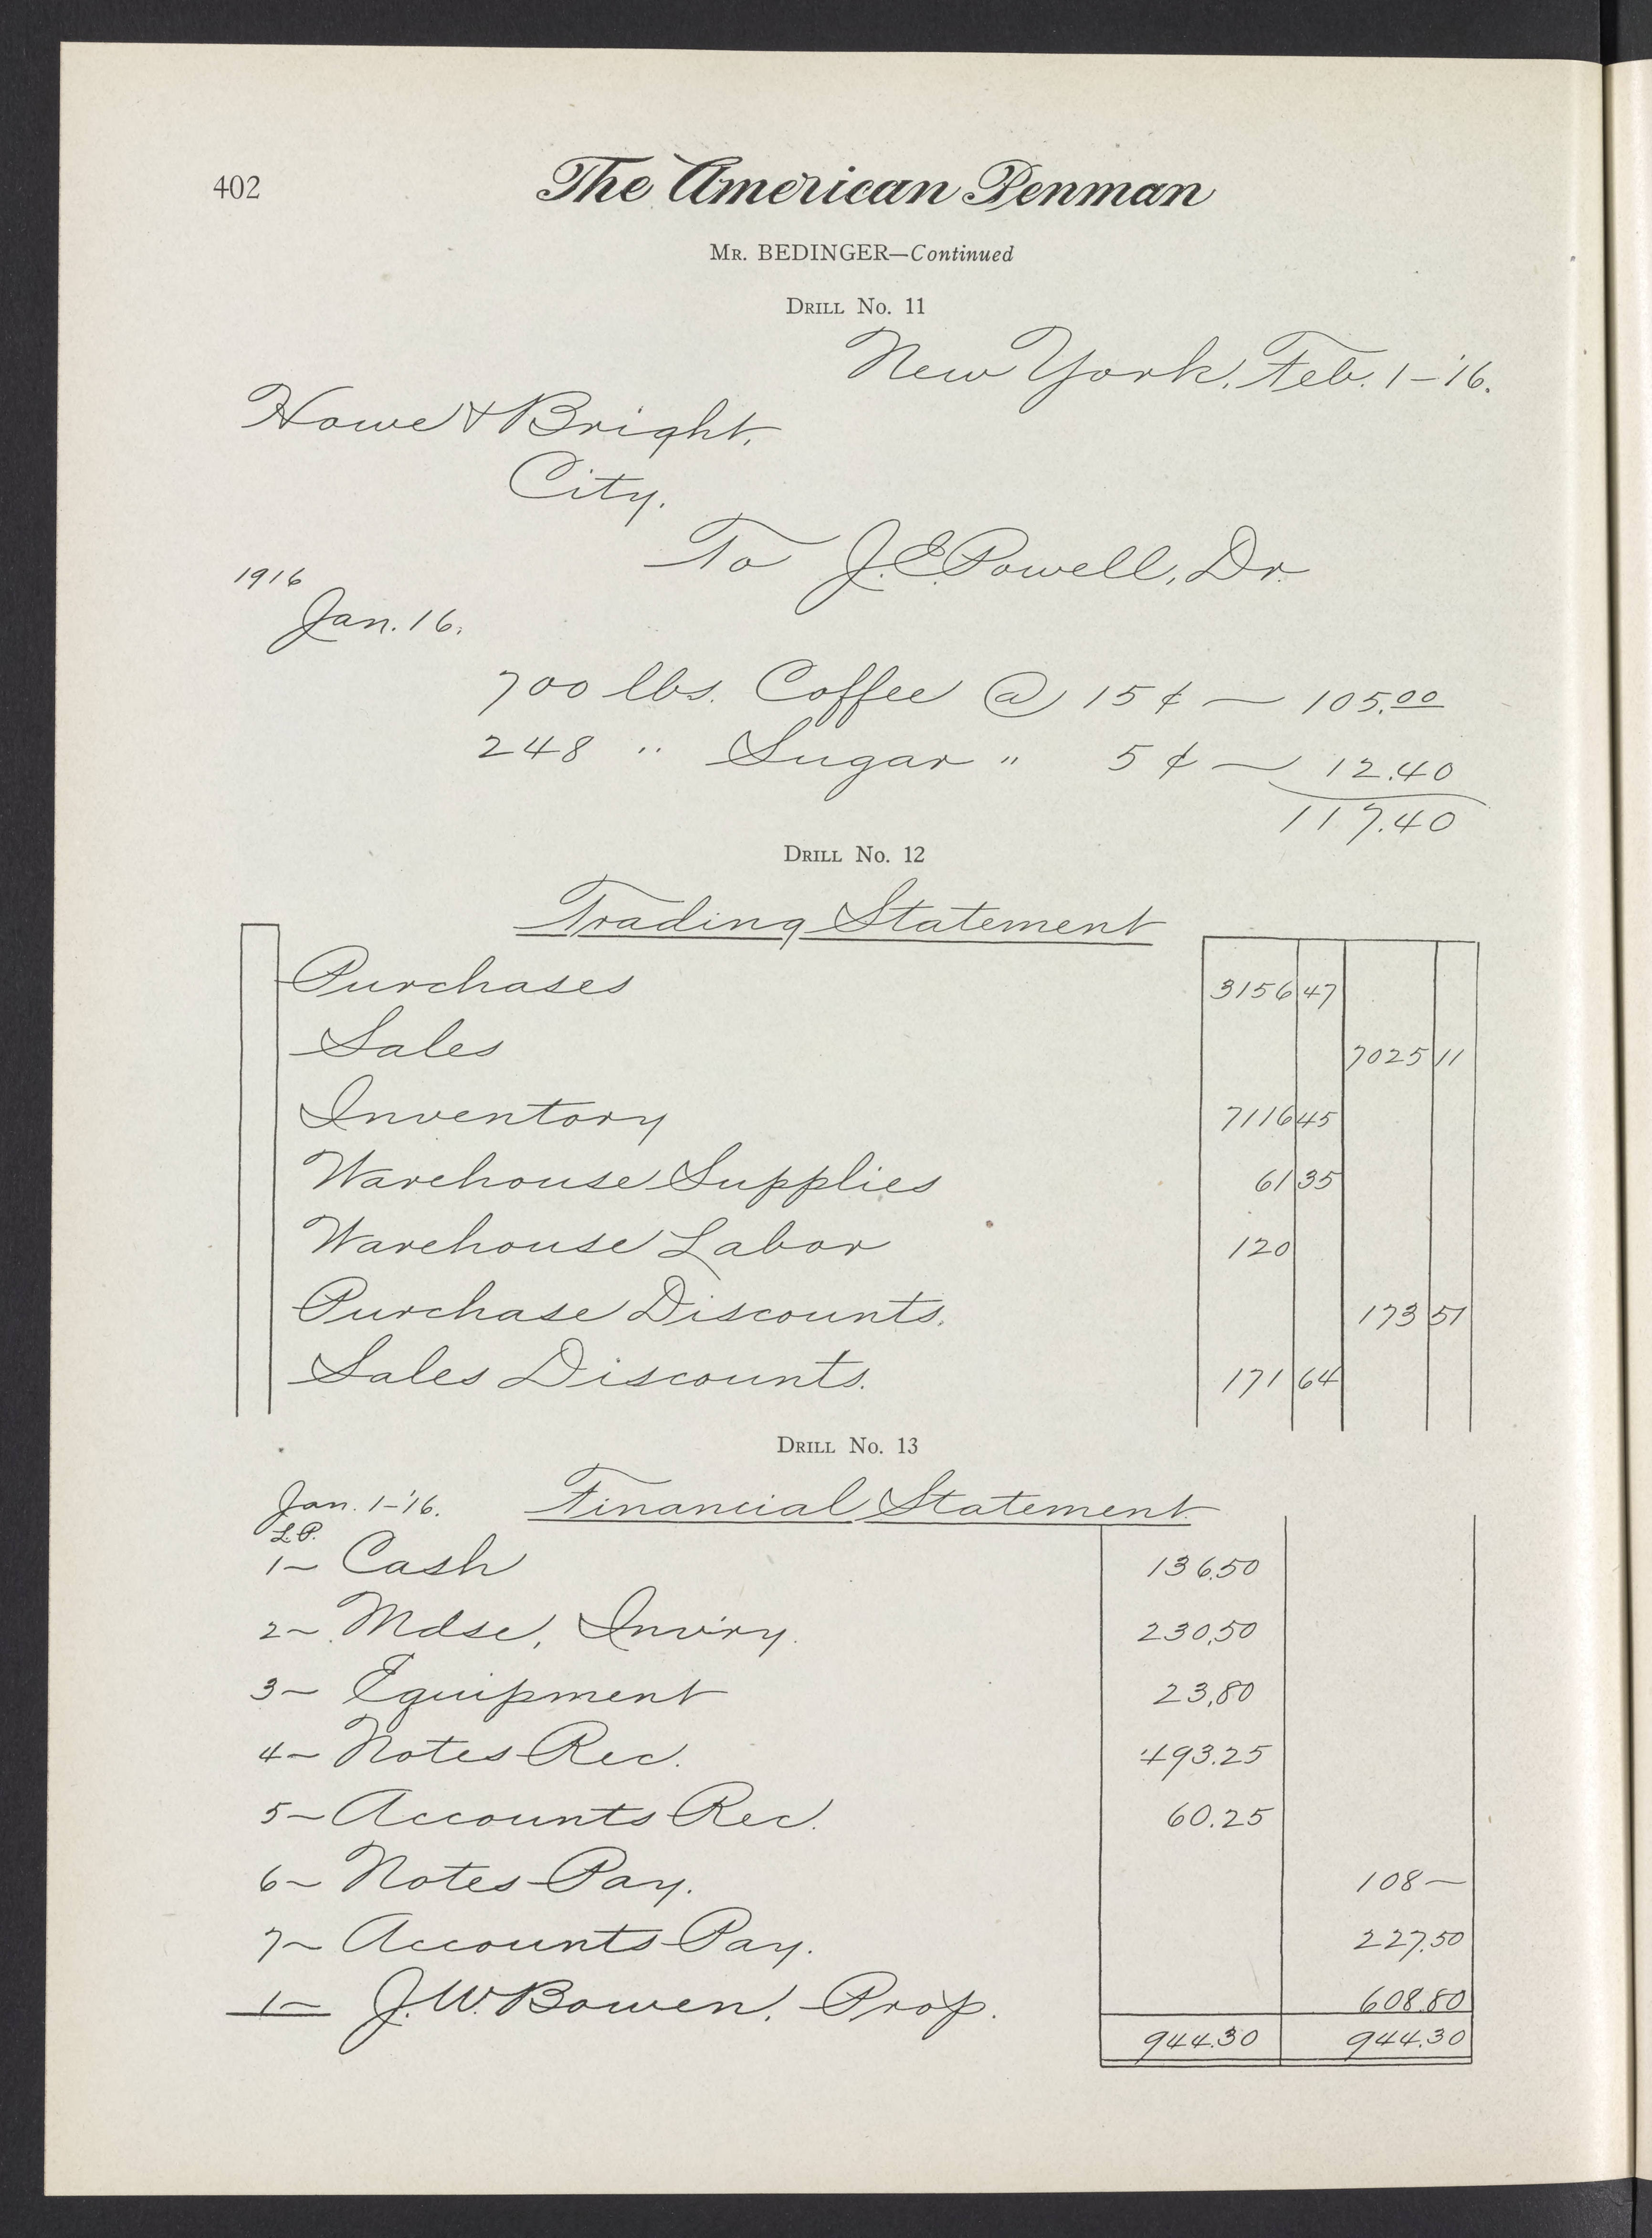 402
The American Penman
Mr. BEDINGER—Continued
Drill No. 11
New York, Feb. 1-'16.
Howe & Bright,
City.
To J.E. Powell, Dr.
1916
Jan. 16.
700 lbs. Coffee @ 15¢ — 105.00
248 " Sugar " 5¢ — 12.40
117.40
Drill No. 12
Trading Statement
Purchases 3156 47
Sales 7025 11
Inventory 7116 45
Warehouse Supplies 61 35
Warehouse Labor 120
Purchase Discounts. 173 51
Sales Discounts. 171 64
Drill No. 13
Jan. 1-'16. Financial Statement
L.P.
1— Cash 136.50
2— Mdse, Inv'ry. 230.50
3— Equipment 23.80
4— Notes Rec. 493.25
5— Accounts Rec. 60.25
6— Notes Pay. 108—
7— Accounts Pay. 227.50
1— J.W. Bowen, Prop. 608.80
944.30 944.30